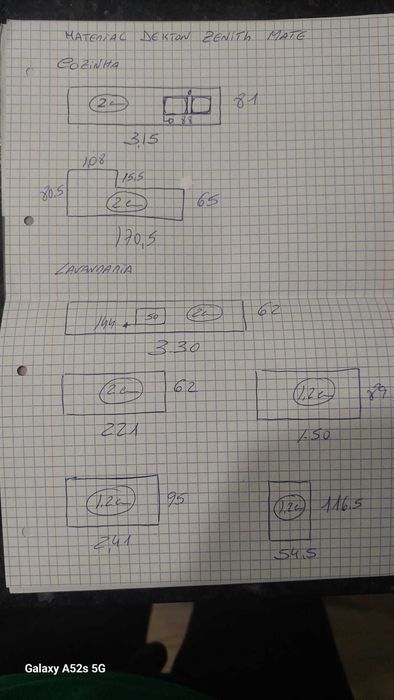 MATERIAL DEKTON ZENITH MATE
COZINHA
2 cm
81
88
3,15
1,08
15,5
80.5
2 cm
65
170,5
LAVANDARIA
144
50
2 cm
62
3.30
2 cm
62
221
1.2 cm
89
1.50
1.2 cm
95
2,41
1.2 cm
116.5
54.5
Galaxy A52s 5G